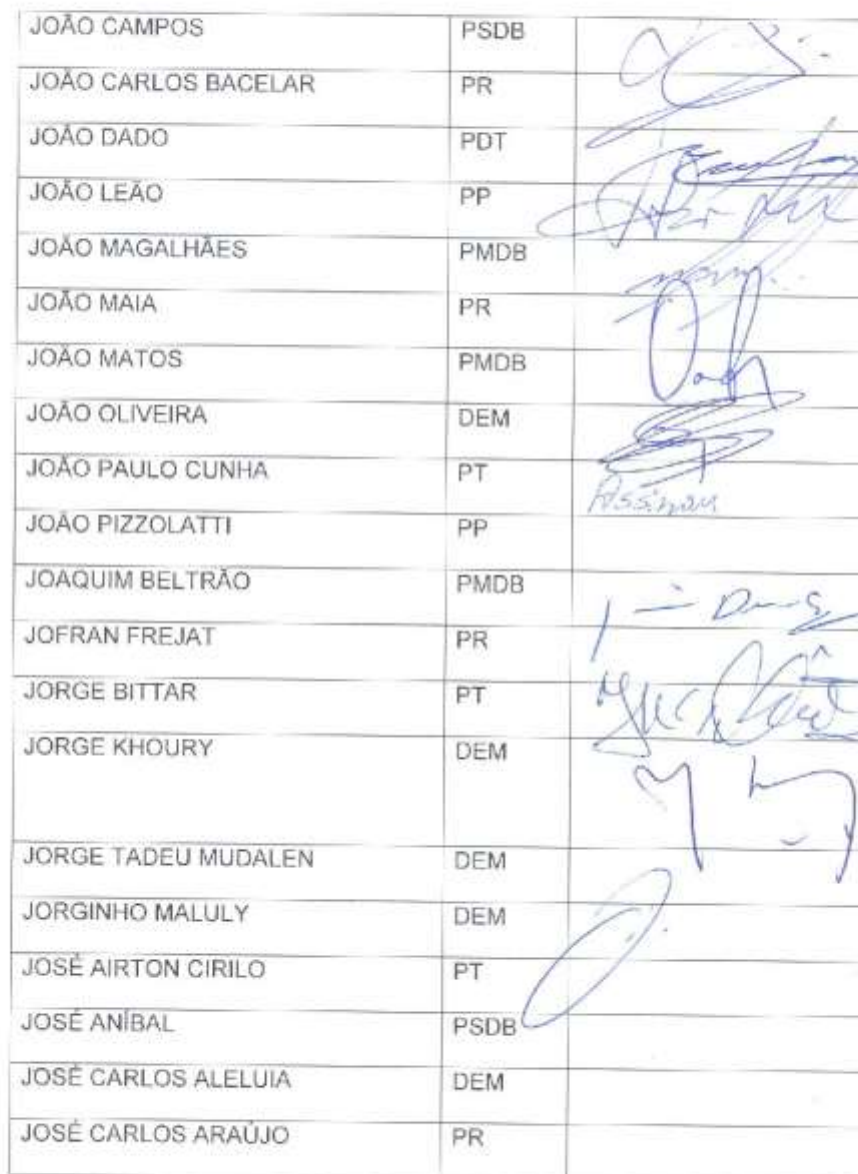 JOÃO CAMPOS PSDB
JOÃO CARLOS BACELAR PR
JOÃO DADO PDT
JOÃO LEÃO PP
JOÃO MAGALHÃES PMDB
JOÃO MAIA PR
JOÃO MATOS PMDB
JOÃO OLIVEIRA DEM
JOÃO PAULO CUNHA PT
Assinou
JOÃO PIZZOLATTI PP
JOAQUIM BELTRÃO PMDB
JOFRAN FREJAT PR
JORGE BITTAR PT
JORGE KHOURY DEM
JORGE TADEU MUDALEN DEM
JORGINHO MALULY DEM
JOSÉ AIRTON CIRILO PT
JOSÉ ANÍBAL PSDB
JOSÉ CARLOS ALELUIA DEM
JOSÉ CARLOS ARAÚJO PR